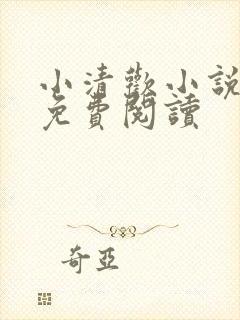 小清歡小說
免費閱讀
奇亞